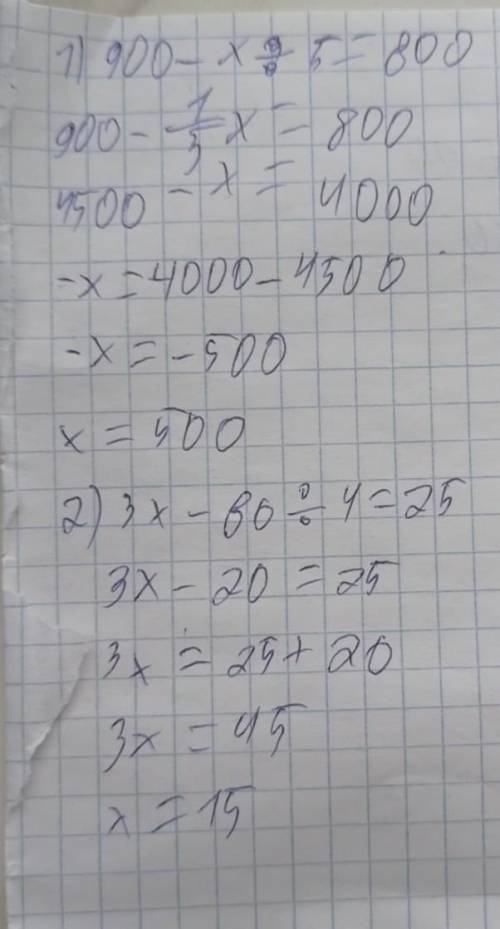 1) 900 - x ÷ 5 = 800
900 - 1/5 x = 800
4500 - x = 4000
-x = 4000 - 4500
-x = -500
x = 500
2) 3x - 80 ÷ 4 = 25
3x - 20 = 25
3x = 25 + 20
3x = 45
x = 15